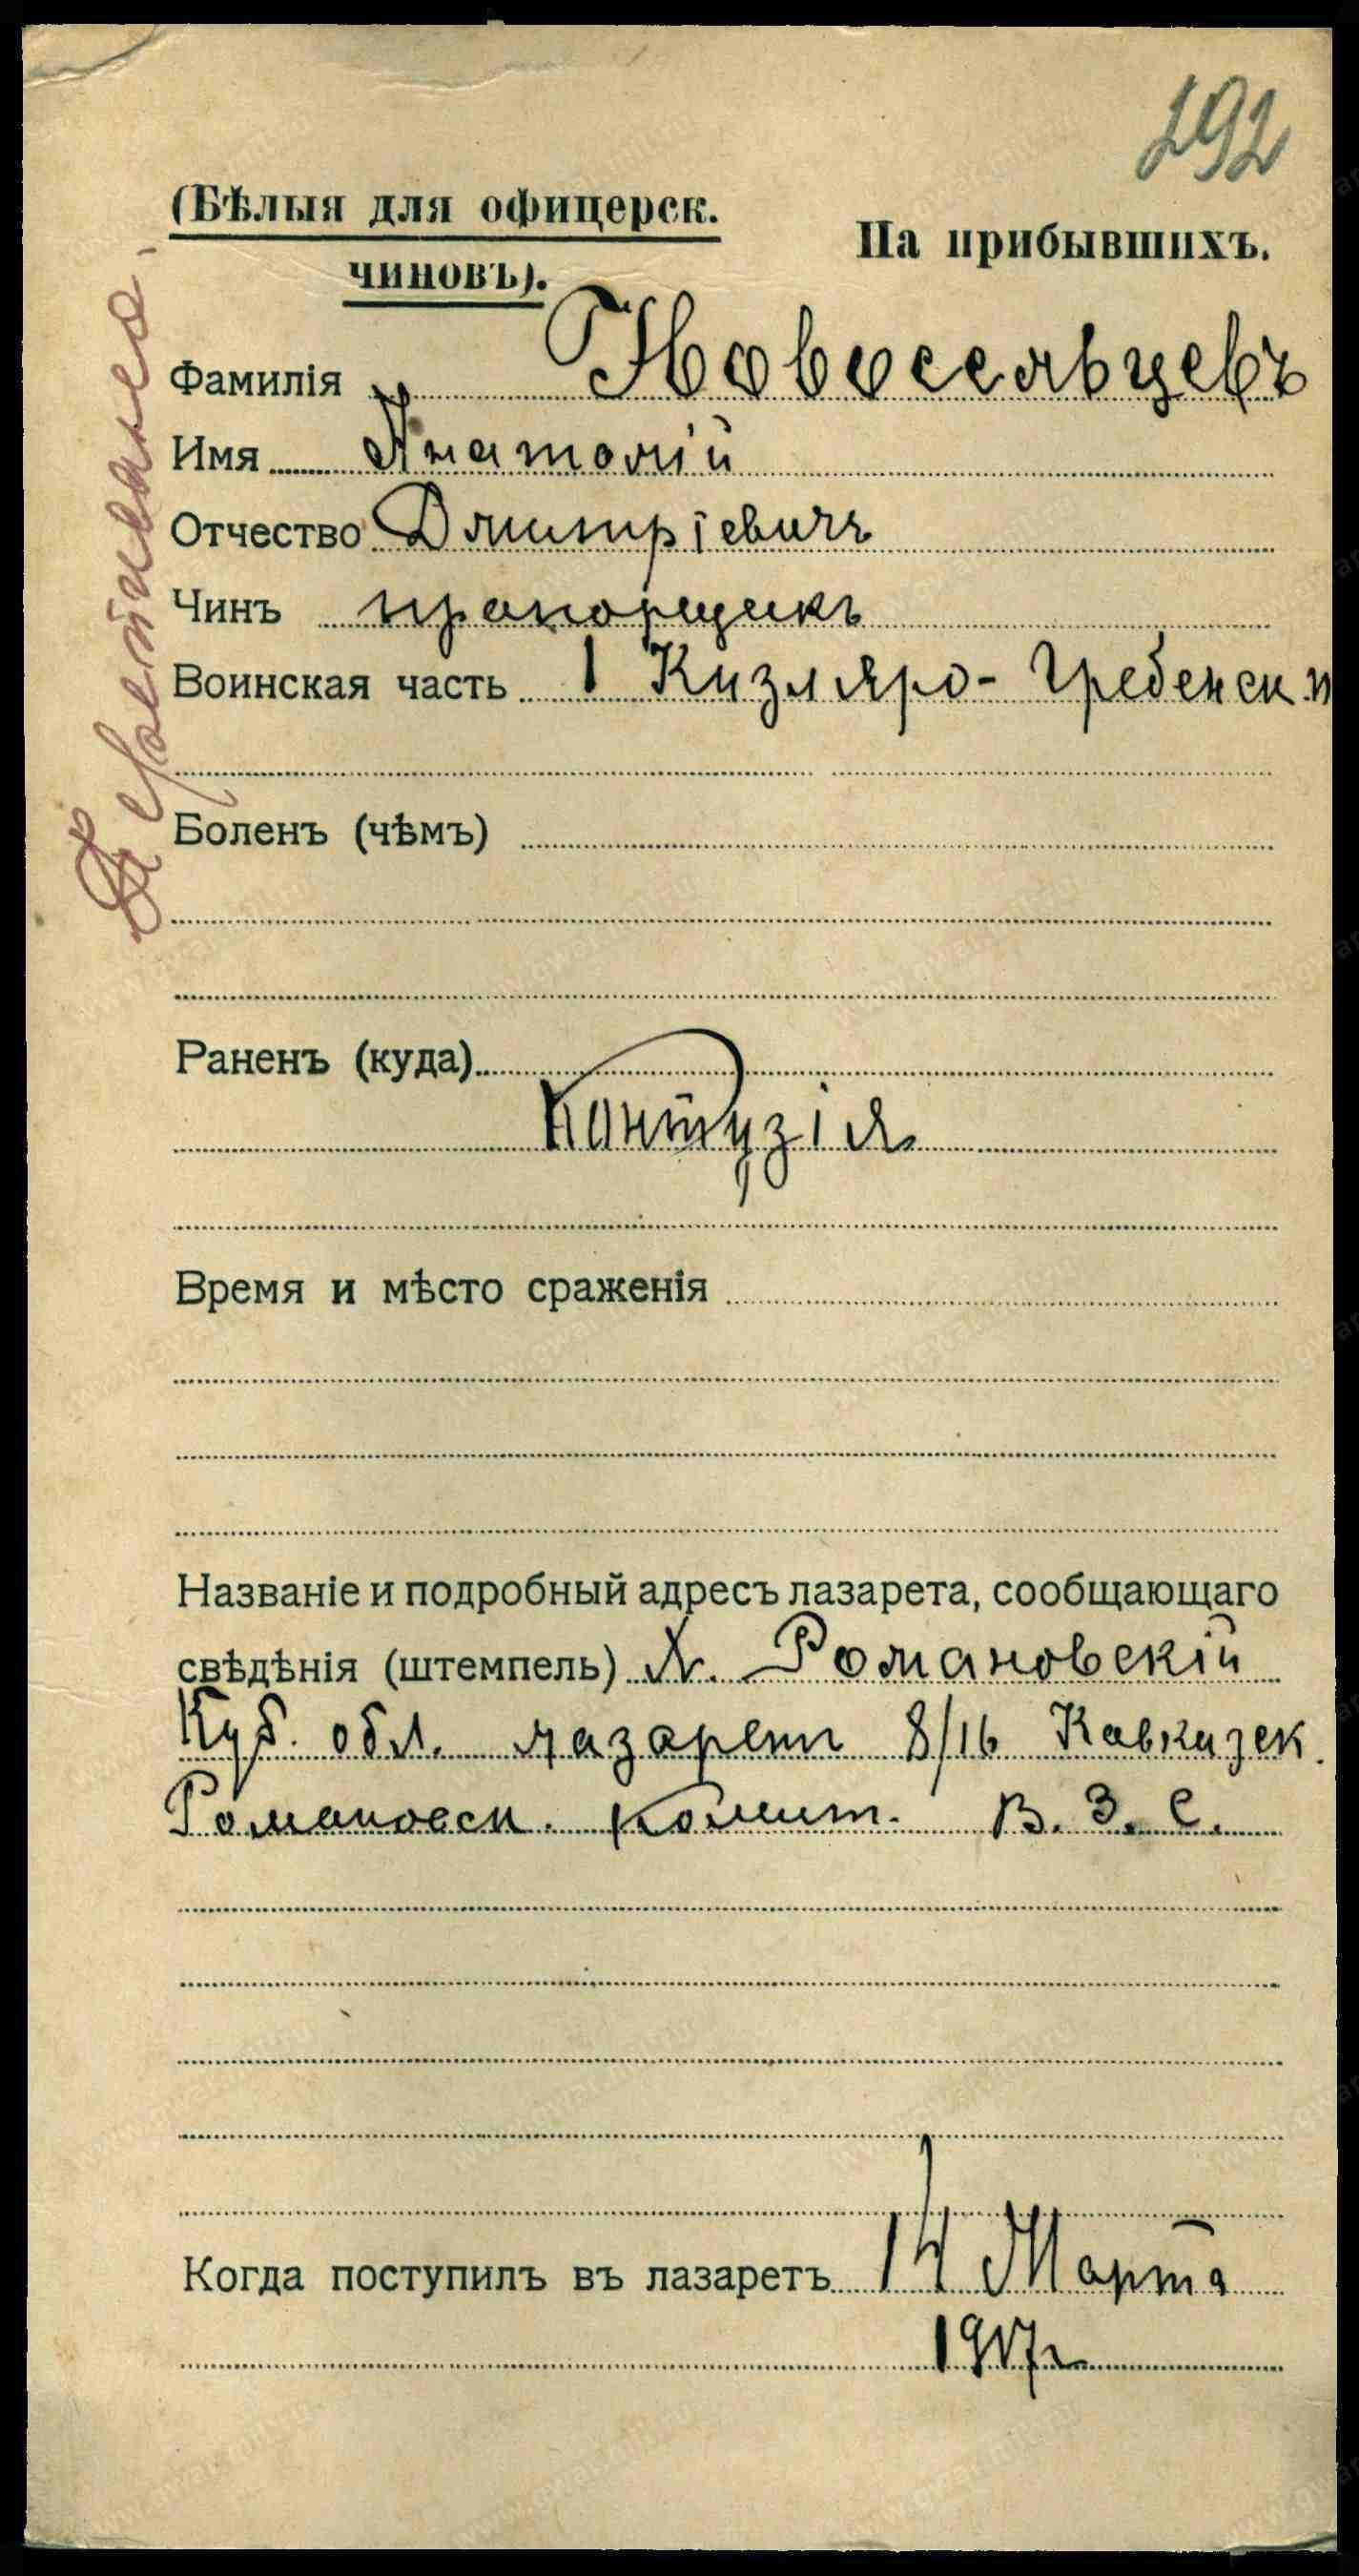 192
(Бѣлыя для офицерск.
чиновъ).
На прибывшихъ.
Фамилія Новосельцевъ
Имя Анатолій
Отчество Дмитріевичъ
Чинъ прапорщикъ
Воинская часть 1 Кизляро-Гребенск.п
Боленъ (чѣмъ)
Раненъ (куда)
Контузія
Время и мѣсто сраженія
Названіе и подробный адресъ лазарета, сообщающаго
свѣдѣнія (штемпель) Х. Романовскій
Куб. обл. лазаретъ 8/16 Кавказск.
Романовск. Комит. В. З. С.
Когда поступилъ въ лазаретъ 14 Марта
1917г